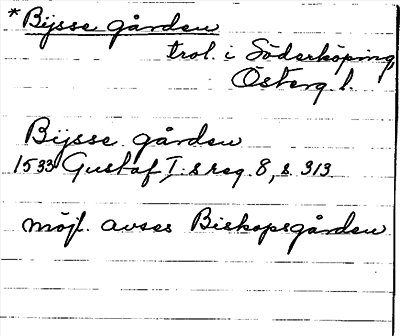 *Bijsse gården
trol. i Söderköping,
Österg. l.
Bijsse gården
1533 Gustaf I:s reg. 8, s. 313
möjl. avses Biskopsgården